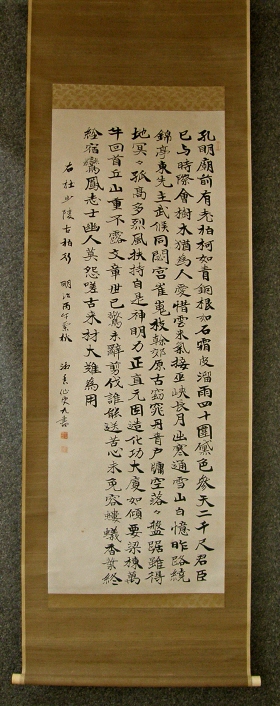 孔明廟前有老柏柯如青銅根如石霜皮溜雨四十圍黛色參天二千尺君臣
已与時際會樹木猶為人愛惜雲来氣接巫峽長月出寒通雪山白憶昨路繞
錦亭東先主武侯同閟宮崔嵬枝幹郊原古窈窕丹青户牖空落々盤踞雖得
地冥々孤高多烈風扶持自是神明力正直元因造化功大廈如傾要梁棟萬
牛回首丘山重不露文章世已驚未辭剪伐誰能送苦心未免容螻蟻香葉終
經宿鸞鳳志士幽人莫怨嗟古来材大難為用
右杜少陵古柏行 明治丙午